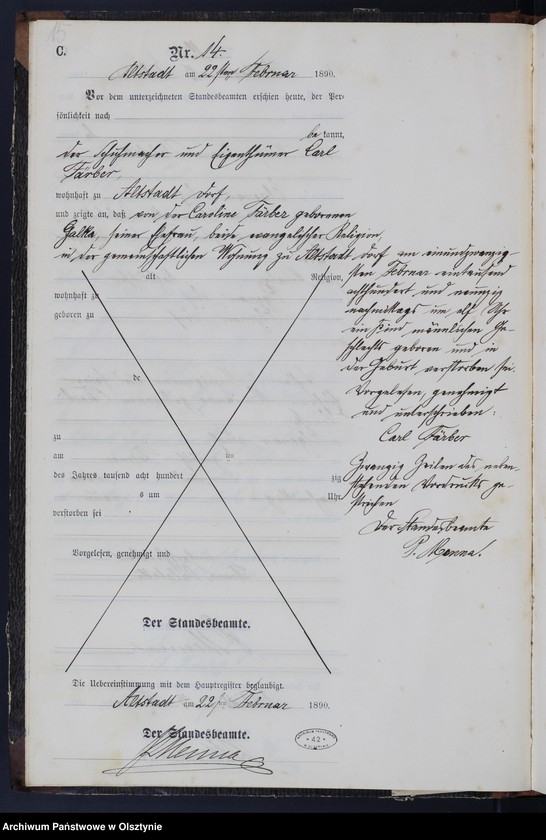 15
C.
Nr. 14.
Altstadt am 22sten Februar 1890.
Vor dem unterzeichneten Standesbeamten erschien heute, der Per-
sönlichkeit nach
be kannt,
der Schuhmacher und Eigenthümer Carl
Färber,
wohnhaft zu Altstadt Dorf,
und zeigte an, daß von der Caroline Färber geborenen
Galka, seiner Ehefrau, beide evangelischer Religion,
in der gemeinschaftlichen Wohnung zu Altstadt Dorf am einundzwanzig-
sten Februar eintausend
achthundert und neunzig
nachmittags um elf Uhr
ein Kind männlichen Ge-
schlechts geboren und in
der Geburt verstorben sei.
Vorgelesen, genehmigt
und unterschrieben:
Carl Färber
Zwanzig Zeilen des neben-
stehenden Vordrucks ge-
strichen
Der Standesbeamte
P. Menna.
alt Religion,
wohnhaft zu
geboren zu
de
zu
am
des Jahres tausend acht hundert zig
s um Uhr
verstorben sei
Vorgelesen, genehmigt und
Der Standesbeamte.
Die Uebereinstimmung mit dem Hauptregister beglaubigt.
Altstadt am 22sten Februar 1890.
Der Standesbeamte.
P. Menna
42
Archiwum Państwowe w Olsztynie